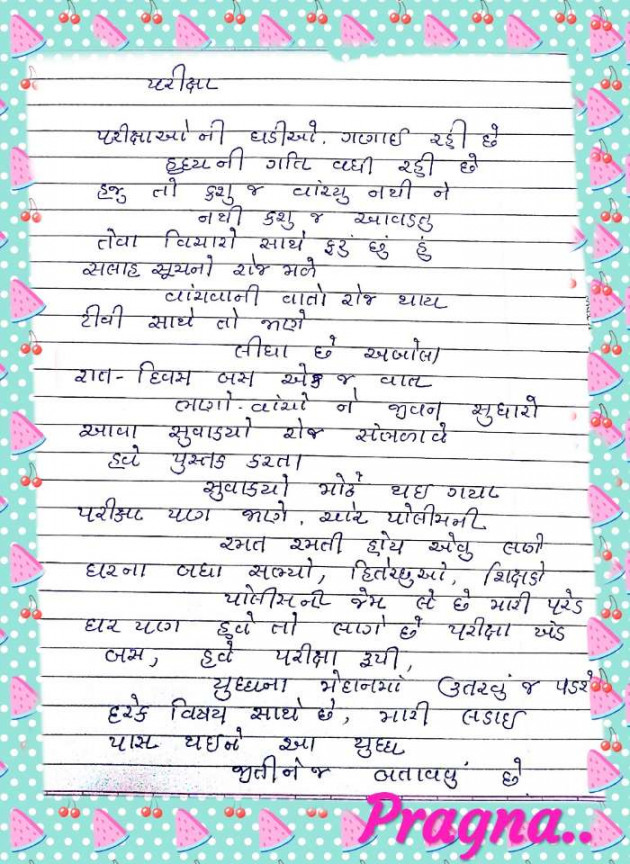 પરીક્ષા
પરીક્ષાઓની ઘડીઓ. ગણાઈ રહી છે
હૃદયની ગતિ વધી રહી છે
હજુ તો કશુ જ વાંચ્યુ નથી ને
નથી કશુ જ આવડતુ
તેવા વિચારો સાથે ફરું છું હું
સલાહ સૂચનો રોજ મળે
વાંચવાની વાતો રોજ થાય
ટીવી સાથે તો જાણે
લીધા છે અબોલા
રાત- દિવસ બસ એક જ વાત
ભણો- વાંચો ને જીવન સુધારો
આવા સુવાક્યો રોજ સંભળાવે
હવે પુસ્તક કરતા
સુવાક્યો મોઢે થઇ ગયા
પરીક્ષા પણ જાણે. ચોર પોલીસની
રમત રમતી હોય એવુ લાગે
ઘરના બધા સભ્યો, હિતેચ્છુઓ, શિક્ષકો
પોલીસની જેમ લે છે મારી પરેડ
ઘર પણ હવે તો લાગે છે પરીક્ષા ખંડ
બસ, હવે પરીક્ષા રૂપી,
યુધ્ધના મેદાનમાં ઉતરવું જ પડશે
દરેક વિષય સાથે છે, મારી લડાઈ
પાસ થઈને આ યુધ્ધ
જીતીને જ બતાવવું છે.
Pragna..